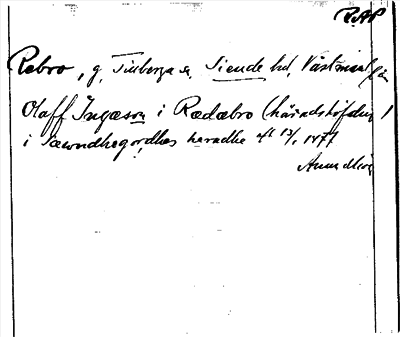 RAP
Rebro, g, Tillberga s, Siende hd, Västmanl län
Olaff Ingæson i Rædæbro (häradshöfding
i Sæwndhegordhes haradhe afl 13/1 1477